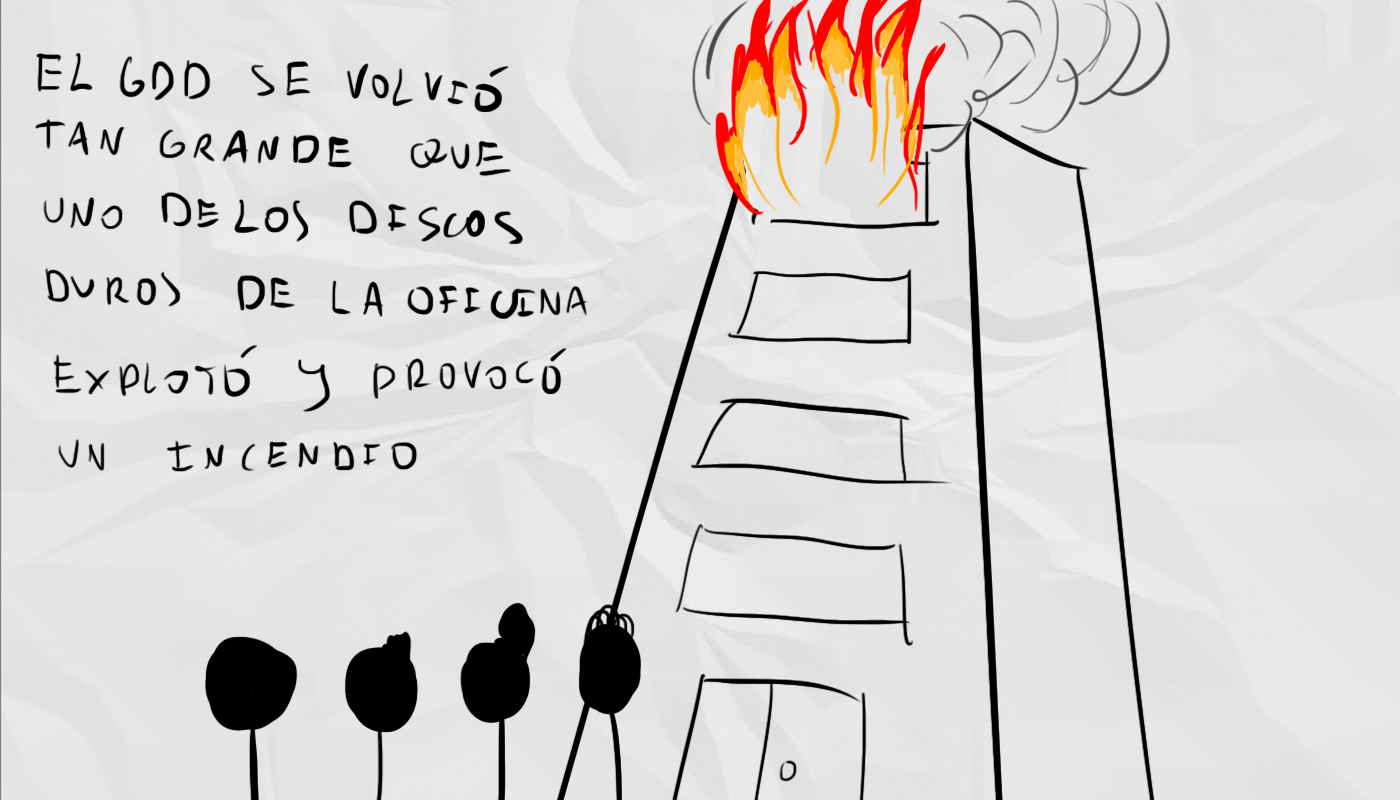 EL GDD SE VOLVIÓ
TAN GRANDE QUE
UNO DE LOS DISCOS
DUROS DE LA OFICINA
EXPLOTÓ Y PROVOCÓ
UN INCENDIO